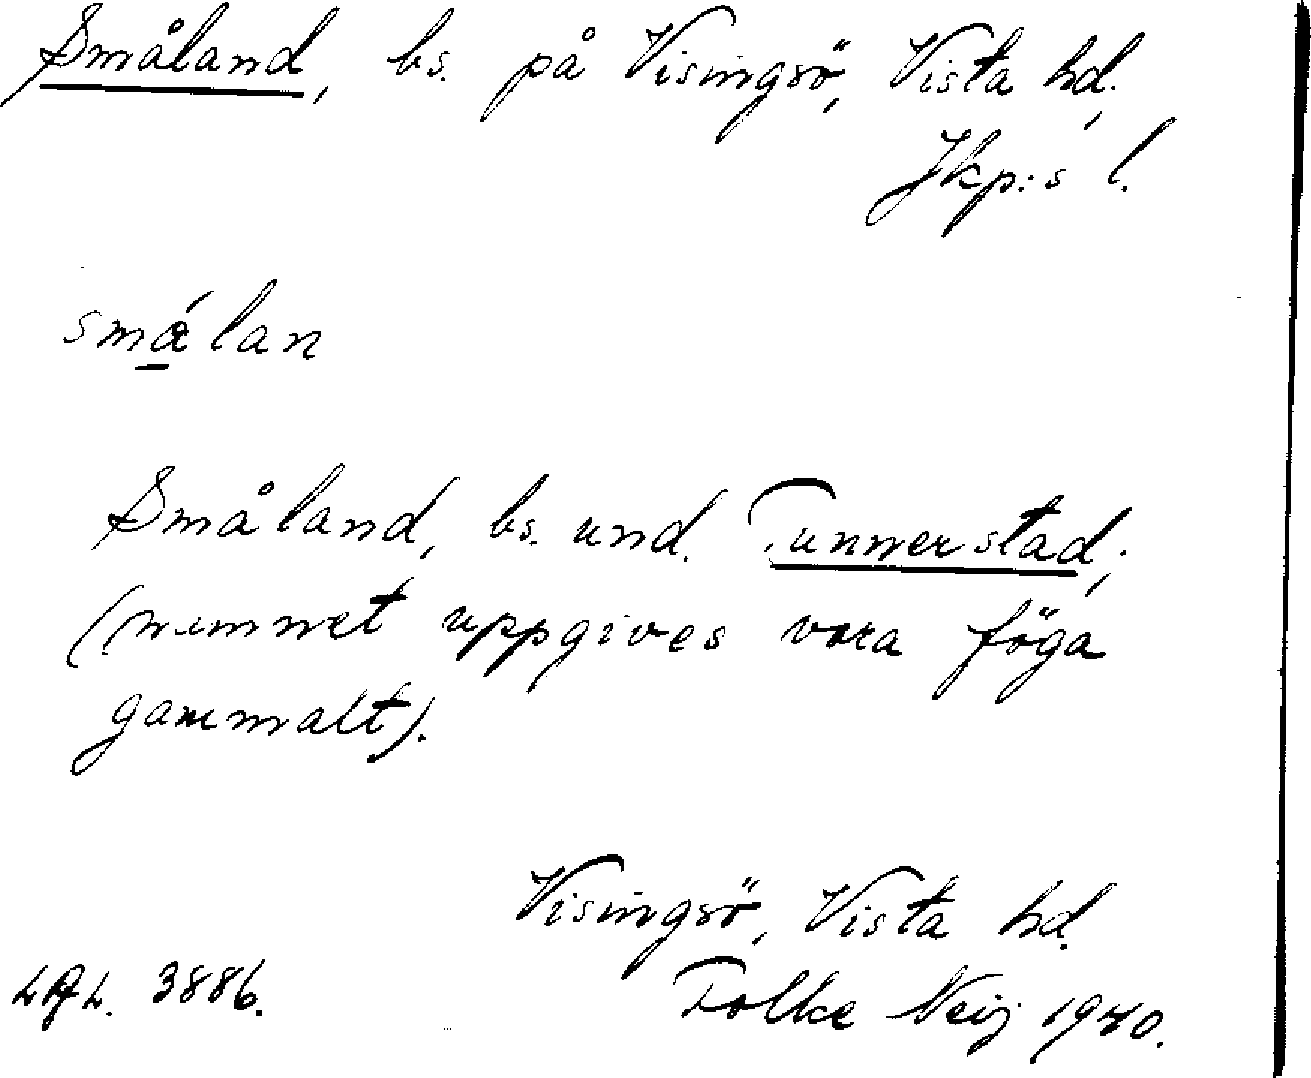 Småland, bs. på Visingsö, Vista hd,
Jkp:s l.
småları
Småland, bs. und. Tunnerstad;
(namnet uppgives vara föga
gammalt).
Visingsö, Vista hd.
3886. Folke Neij 1940.